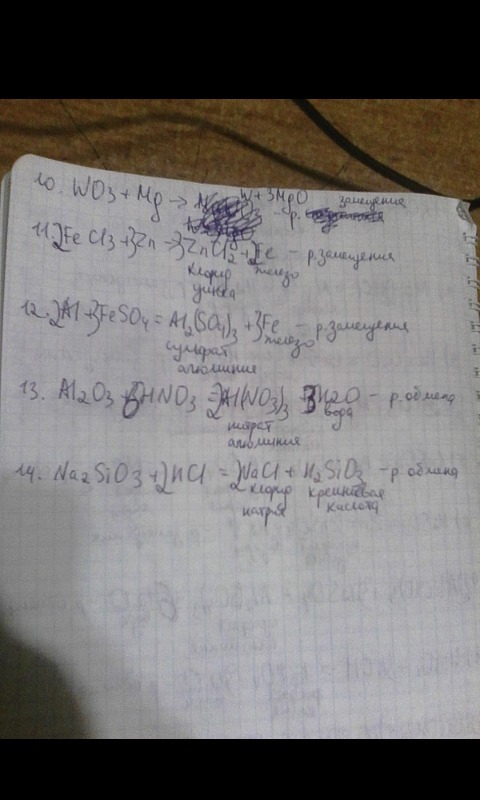 10. WO3 + Mg → W + 3MgO замещения
- р.
11. 2FeCl3 + 3Zn → 3ZnCl2 + 2Fe - р. замещения
хлорид железо
цинка
12. 2Al + 3FeSO4 = Al2(SO4)3 + 3Fe - р. замещения
сульфат железо
алюминия
13. Al2O3 + 6HNO3 = 2Al(NO3)3 + 3H2O - р. обмена
нитрат вода
алюминия
14. Na2SiO3 + 2HCl = 2NaCl + H2SiO3 - р. обмена
хлорид кремниевая
натрия кислота